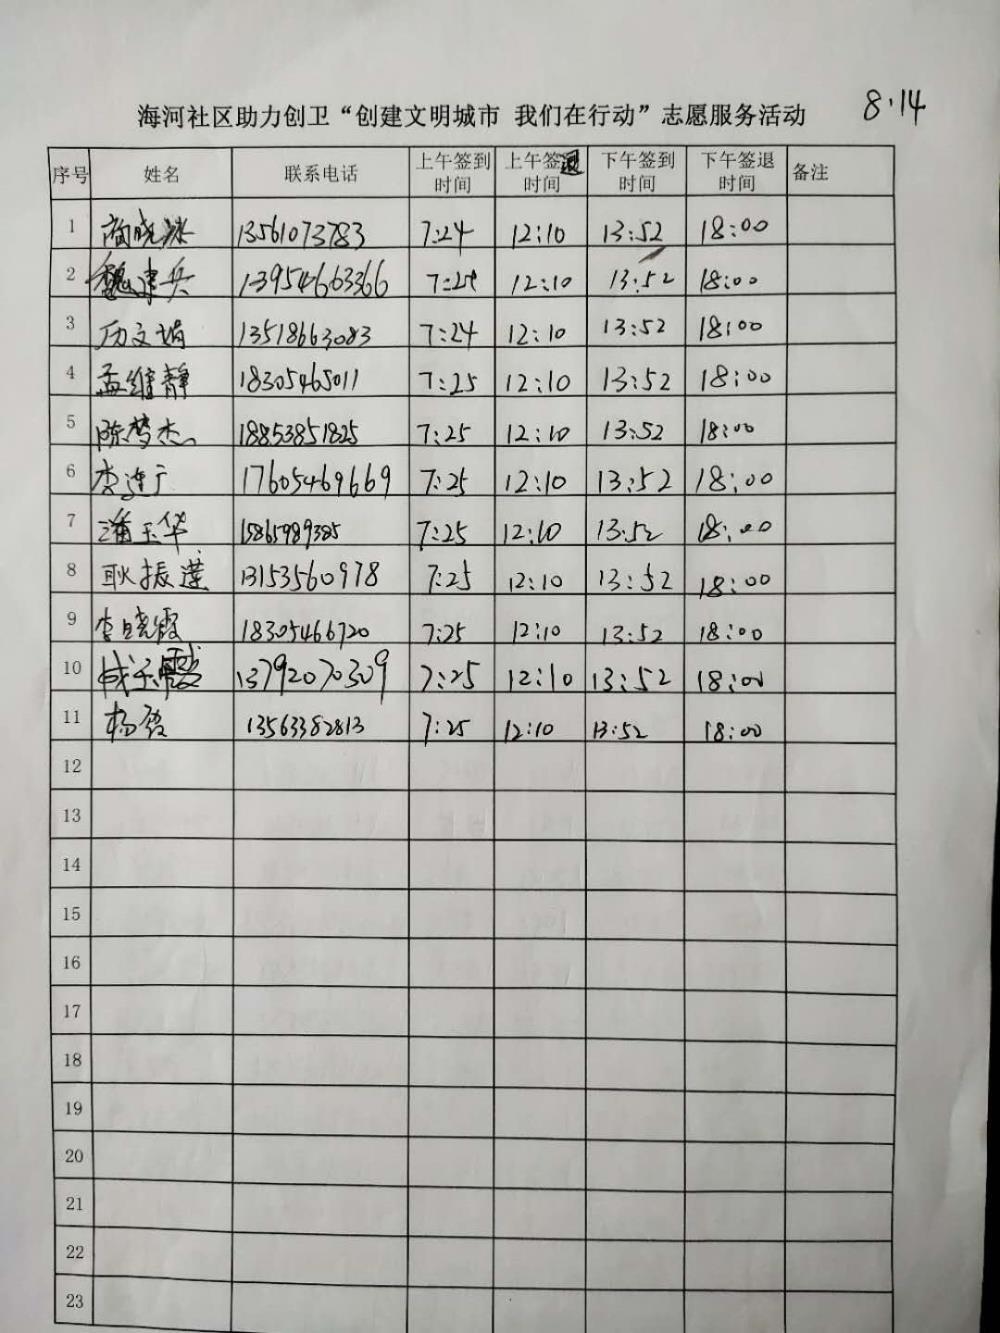 海河社区助力创卫“创建文明城市 我们在行动”志愿服务活动 8.14
序号 姓名 联系电话 上午签到时间 上午签退时间 下午签到时间 下午签退时间 备注
1 13561073783 7:24 12:10 13:52 18:00
2 魏建兵 13954663366 7:25 12:10 13:52 18:00
3 历文娟 13518663083 7:24 12:10 13:52 18:00
4 孟维静 18305465011 7:25 12:10 13:52 18:00
5 陈梦杰 18853851825 7:25 12:10 13:52 18:00
6 李连广 17605469669 7:25 12:10 13:52 18:00
7 潘玉华 15865989385 7:25 12:10 13:52 18:00
8 耿振莲 13153560978 7:25 12:10 13:52 18:00
9 李晓霞 18305466720 7:25 12:10 13:52 18:00
10 成玉霞 13792070309 7:25 12:10 13:52 18:00
11 杨 13563382813 7:25 12:10 13:52 18:00
12
13
14
15
16
17
18
19
20
21
22
23